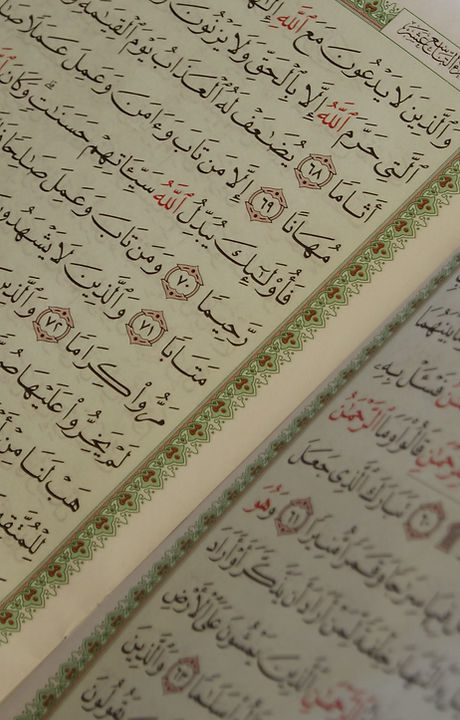 وَٱلَّذِينَ لَا يَدْعُونَ مَعَ ٱللَّهِ إِلَٰهًا
ٱلَّتِى حَرَّمَ ٱللَّهُ إِلَّا بِٱلْحَقِّ وَلَا يَزْنُونَ
أَثَامًا ٦٨ يُضَٰعَفْ لَهُ ٱلْعَذَابُ يَوْمَ ٱلْقِيَٰمَةِ
مُهَانًا ٦٩ إِلَّا مَن تَابَ وَءَامَنَ وَعَمِلَ عَمَلًا صَٰلِحًا
فَأُو۟لَٰٓئِكَ يُبَدِّلُ ٱللَّهُ سَيِّـَٔاتِهِمْ حَسَنَٰتٍ وَكَانَ
رَّحِيمًا ٧٠ وَمَن تَابَ وَعَمِلَ صَٰلِحًا
مَتَابًا ٧١ وَٱلَّذِينَ لَا يَشْهَدُونَ
مَرُّوا۟ كِرَامًا ٧٢ وَٱلَّذِينَ
لَمْ يَخِرُّوا۟ عَلَيْهَا صُمًّا
هَبْ لَنَا مِنْ
لِلْمُتَّقِينَ
بَيْنَهُمَا
فَسْـَٔلْ بِهِۦ
قَالُوا۟ وَمَا ٱلرَّحْمَٰنُ
٦٠ تَبَارَكَ ٱلَّذِى جَعَلَ
فِيهَا سِرَٰجًا وَقَمَرًا مُّنِيرًا ٦١ وَهُوَ
وَٱلنَّهَارَ خِلْفَةً لِّمَنْ أَرَادَ أَن يَذَّكَّرَ أَوْ أَرَادَ
ٱلرَّحْمَٰنِ ٱلَّذِينَ يَمْشُونَ عَلَى ٱلْأَرْضِ
سَلَٰمًا ٦٣ وَٱلَّذِينَ
يَقُولُونَ